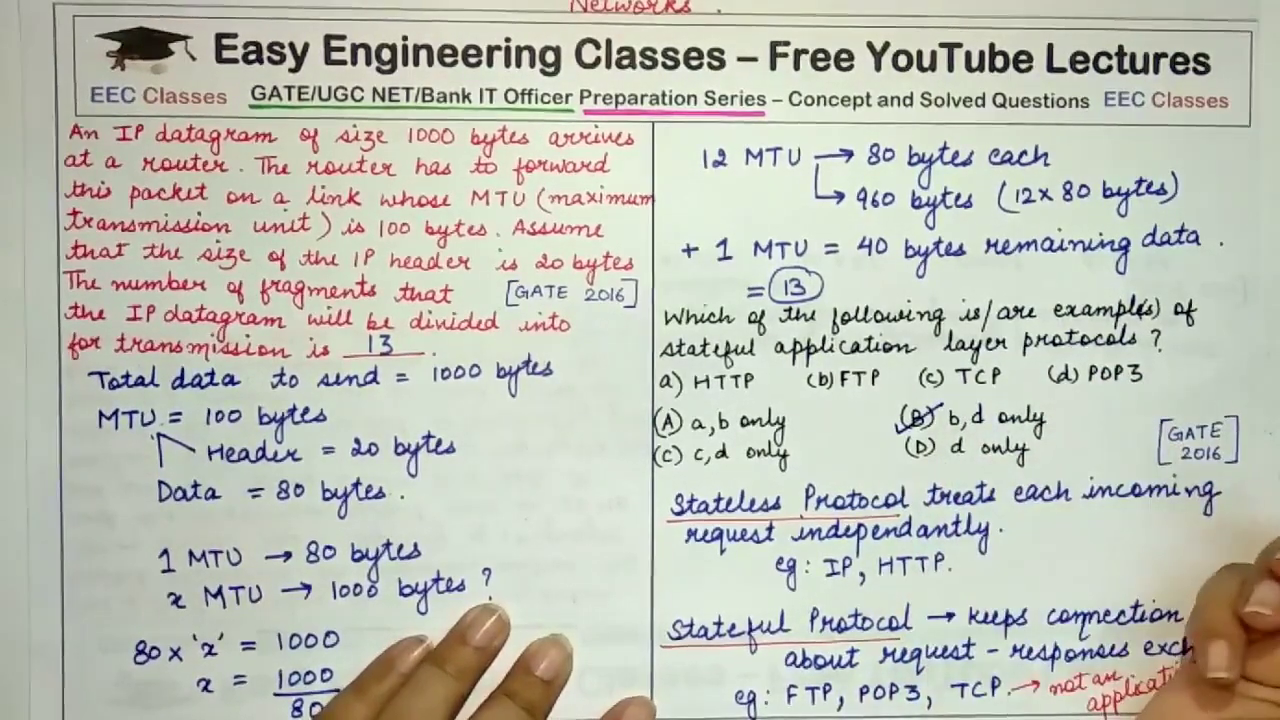 Networks.
Easy Engineering Classes – Free YouTube Lectures
EEC Classes GATE/UGC NET/Bank IT Officer Preparation Series – Concept and Solved Questions EEC Classes
An IP datagram of size 1000 bytes arrives
at a router. The router has to forward
this packet on a link whose MTU (maximum
transmission unit) is 100 bytes. Assume
that the size of the IP header is 20 bytes
The number of fragments that [GATE 2016]
the IP datagram will be divided into
for transmission is 13.
Total data to send = 1000 bytes
MTU = 100 bytes
Header = 20 bytes
Data = 80 bytes.
1 MTU → 80 bytes
x MTU → 1000 bytes ?
80 x 'x' = 1000
x = 1000
80
12 MTU → 80 bytes each
↳ 960 bytes (12 x 80 bytes)
+ 1 MTU = 40 bytes remaining data.
= 13
Which of the following is/are example(s) of
stateful application layer protocols ?
a) HTTP (b) FTP (c) TCP (d) POP3
(A) a, b only (B) b, d only
(C) c, d only (D) d only
[GATE
2016]
Stateless Protocol treats each incoming
request independantly.
eg: IP, HTTP.
Stateful Protocol → keeps connection
about request - responses exch
eg: FTP, POP3, TCP → not an
applicati